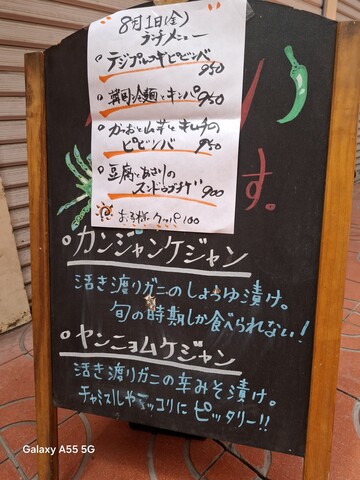 8月1日(金)
ランチメニュー
デジプルコギビビンバ 950
韓国冷麺とキンパ 950
かつおと山芋とキムチの
ビビンバ 950
豆腐とあさりの
スンドゥブチゲ 900
お子様クッパ100
す。
カンジャンケジャン
活き渡りガニのしょうゆ漬け。
旬の時期しか食べられない!
ヤンニョムケジャン
活き渡りガニの辛みそ漬け。
チャミスルやマッコリにピッタリー!!
Galaxy A55 5G